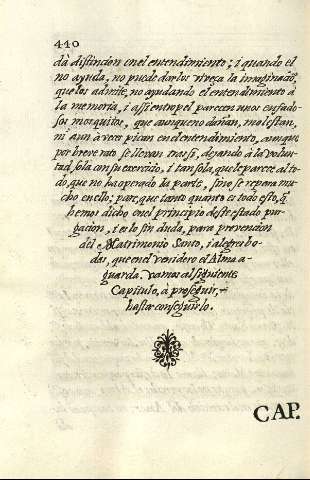 440
dà distincion en el entendimiento; i quando el
no ayuda, no puede darlos viveza la imaginaciõ,
que los admite, no ayudando el entendimiento à
la memoria, i assi entropel parecen unos enfado
sos mosquitos, que aunque no dañan, molestan.
ni aun à veces pican en el entendimiento, aunque
por breve rato se llevan tras si, dexando à la volun
tad sola con su exercicio, i tan sola, que le parece al to
do que no ha operado su parte, sino se repara mu
cho en ello; parc, que tanto quanto es todo esto, q̃
hemos dicho en el principio deste estado pur
gacion, i es lo sin duda, para prevencion
del Matrimonio Santo, i alegre bo
das, que en el venidero el Alma a-
guarda. Vamos al siguiente
Capitulo, à proseguir,
hasta conseguirlo.
CAP.